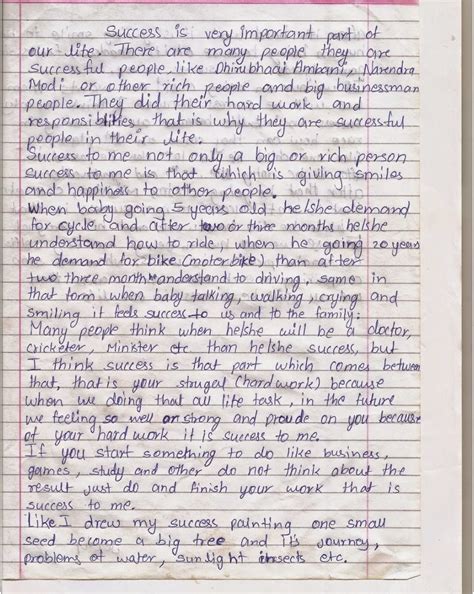 Success is very important part of
our life. There are many people they are
successful people like Dhirubhaai Ambani, Narendra
Modi or other rich people and big businessman
people. They did their hard work and
responsiblities that is why they are successful
people in their life.
Success to me not only a big or rich person
success to me is that which is giving smiles
and happiness to other people.
When baby going 5 years old he/she demand
for cycle and after two or three months he/she
understand how to ride, when he going 20 years
he demand for bike (motor bike) than after
two three month understand to driving, same in
that form when baby talking, walking, crying and
smiling it leds success to us and to the family.
Many people think when he/she will be a doctor,
cricketer, Minister etc than he/she success, but
I think success is that part which comes between
that, that is your strugal (hard work) because
when we doing that all life task, in the future
we feeling so well or strong and proude on you because
of your hard work it is success to me.
If you start something to do like business,
games, study and other do not think about the
result just do and finish your work that is
success to me.
Like I drew my success painting one small
seed become a big tree and it's journey,
problems of water, sunlight insects etc.